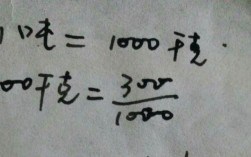 1吨 = 1000千克.
00千克 = 300/1000